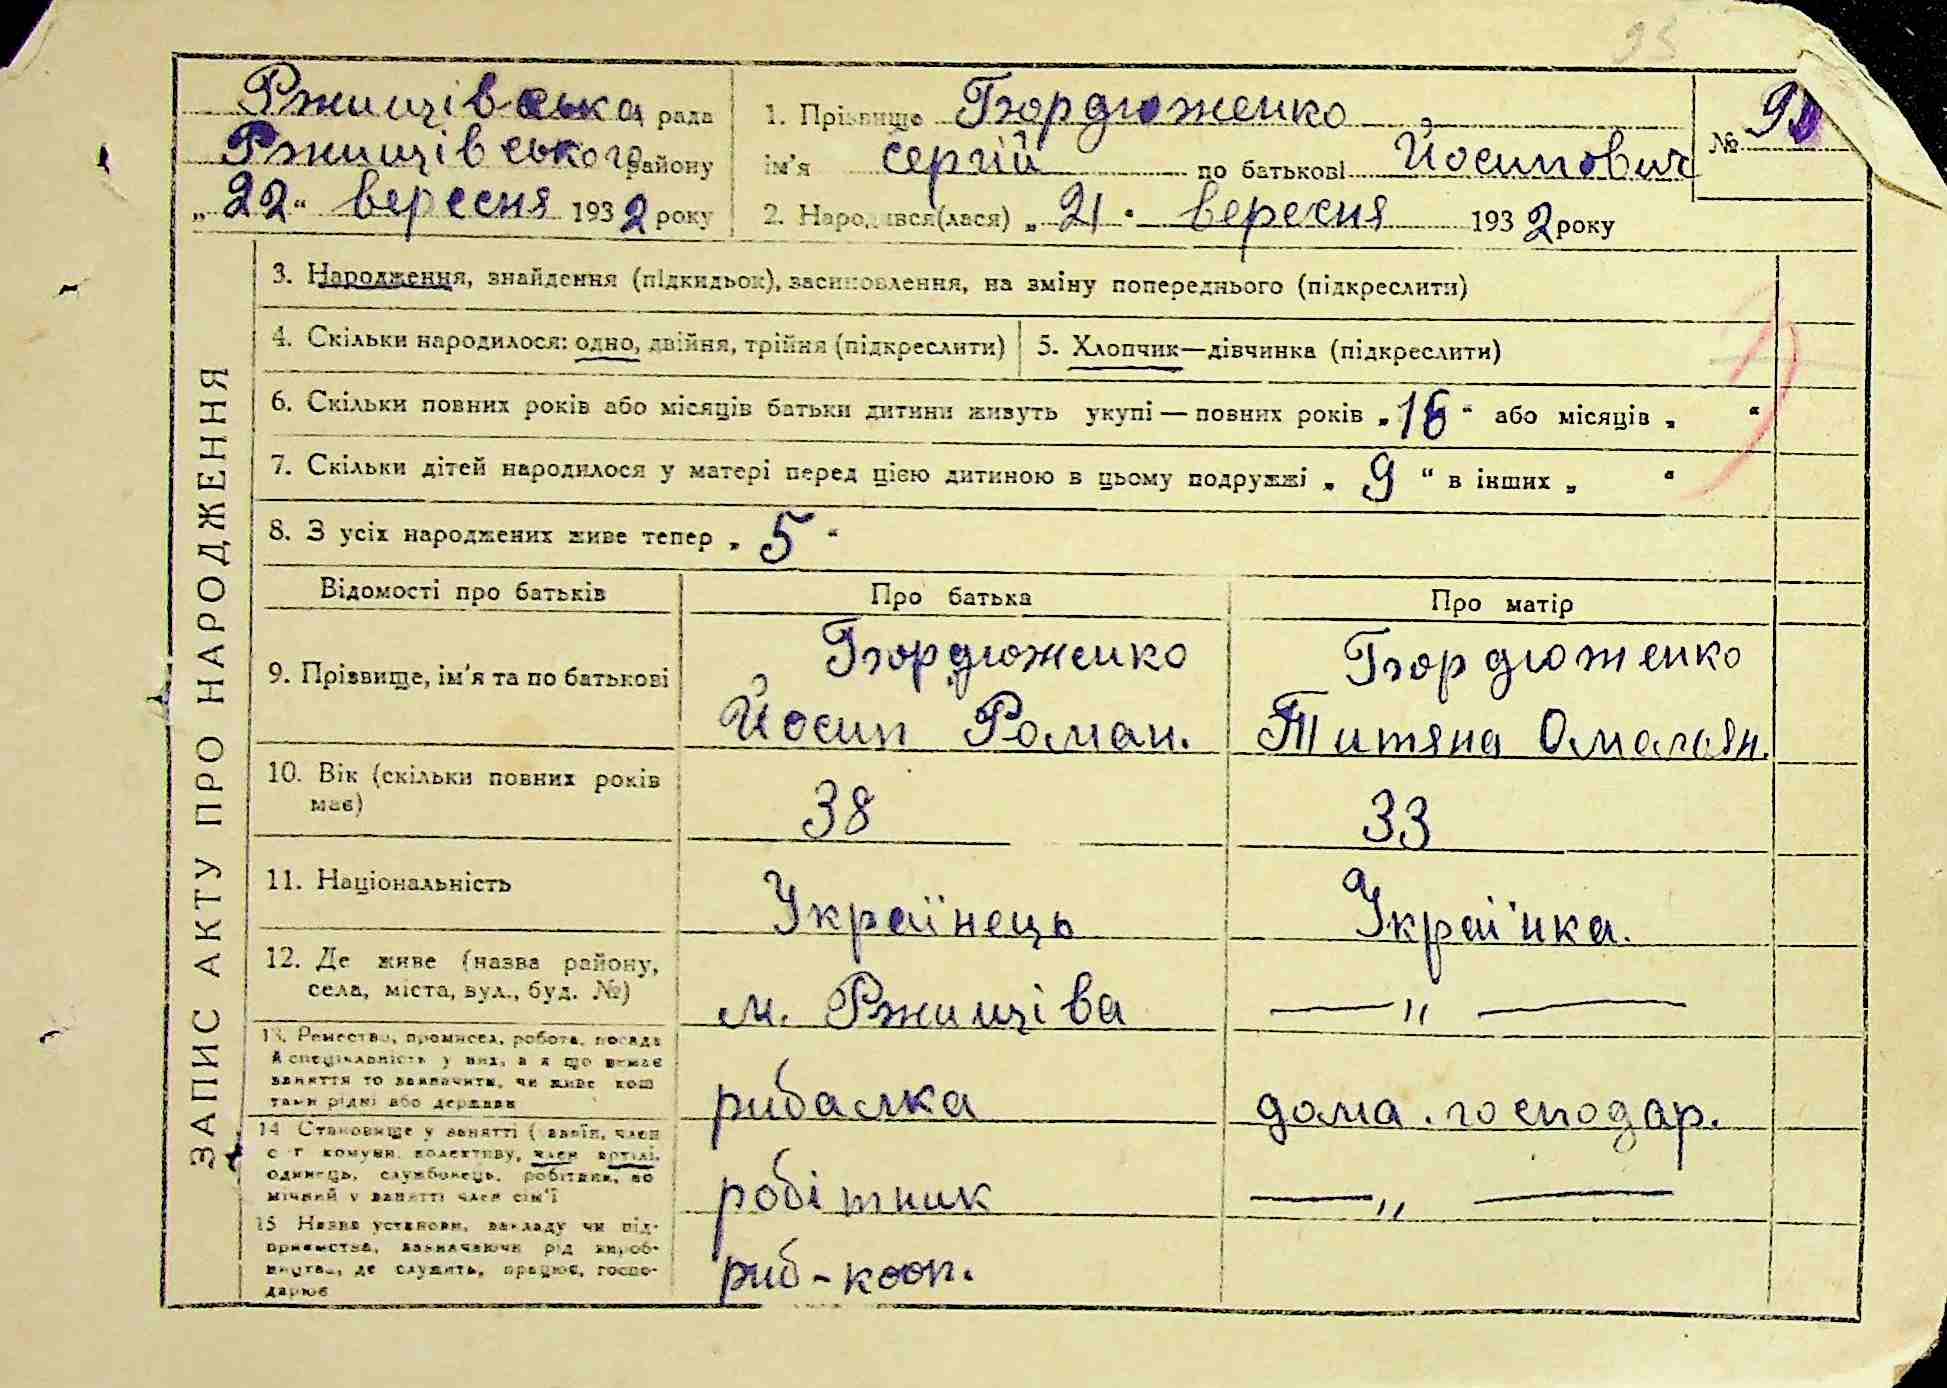 95
Ржищівська рада
Ржищівського району
„22“ вересня 1932 року
1. Прізвище Бордюженко
ім'я Сергій по батькові Йосипович
2. Народився(лася) „21“ вересня 1932 року
№
ЗАПИС АКТУ ПРО НАРОДЖЕННЯ
3. Народження, знайдення (підкидьок), засиновлення, на зміну попереднього (підкреслити)
4. Скільки народилося: одно, двійня, трійня (підкреслити)
5. Хлопчик—дівчинка (підкреслити)
6. Скільки повних років або місяців батьки дитини живуть укупі — повних років „16“ або місяців „ “
7. Скільки дітей народилося у матері перед цією дитиною в цьому подружжі „ 9 “ в інших „ “
8. З усіх народжених живе тепер „ 5 “
Відомості про батьків Про батька Про матір
9. Прізвище, ім'я та по батькові
Бордюженко
Йосип Роман.
Бордюженко
Титяна Омельян.
10. Вік (скільки повних років
має)
38 33
11. Національність
Українець Українка.
12. Де живе (назва району,
села, міста, вул., буд. №)
м. Ржищіва — „ —
13. Ремество, промисел, робота, посада
й спеціальність у них, а якщо немає
заняття то зазначити, чи живе кош
тами рідні або держави
рибалка дома . господар.
14 Становище у занятті (хазяїн, член
с г комуни, колективу, член артілі,
одинець, службовець, робітник, по
мічний у занятті член сім'ї
робітник — „ —
15 Назва установи, закладу чи під-
приємства, зазначаючи рід вироб-
ництва, де служить, працює, госпо-
дарює
риб-кооп.